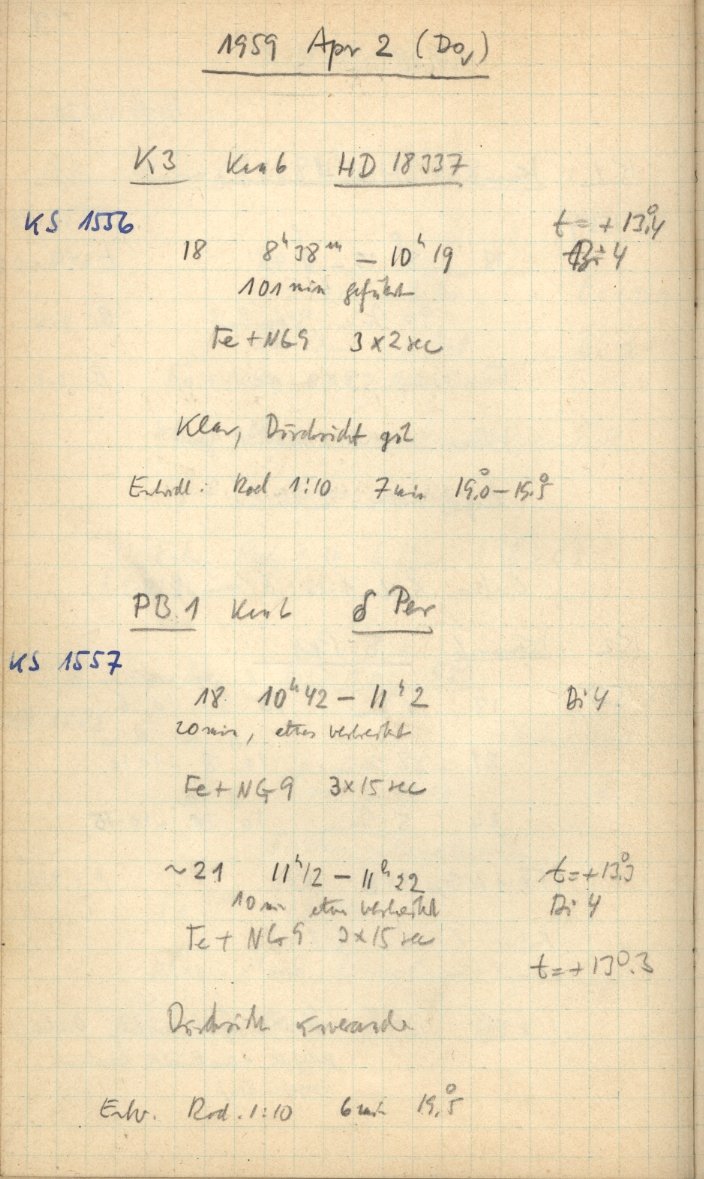 1959 Apr 2 (Do,)
K3 Kan6 HD 18337
KS 1556
t = + 13°,4
18 8h 38m – 10h 19
Bi 4
101 min geführt
Fe + NG9 3 x 2 sec
Klar, Durchsicht gut
Entwickl: Rod 1:10 7 min 19°,0 – 19°,5
PB 1 Kan6 δ Per
KS 1557
18 10h 42 – 11h 2 Bi 4
20 min, etwas verbreitert
Fe + NG 9 3 x 15 sec
~ 21 11h 12 – 11h 22 t = + 13°,3
10 min etwas verbreitert Bi 4
Fe + NG 9 3 x 15 sec
t = + 13°.3
Durchsicht
Entw. Rod. 1:10 6 min 19°,5